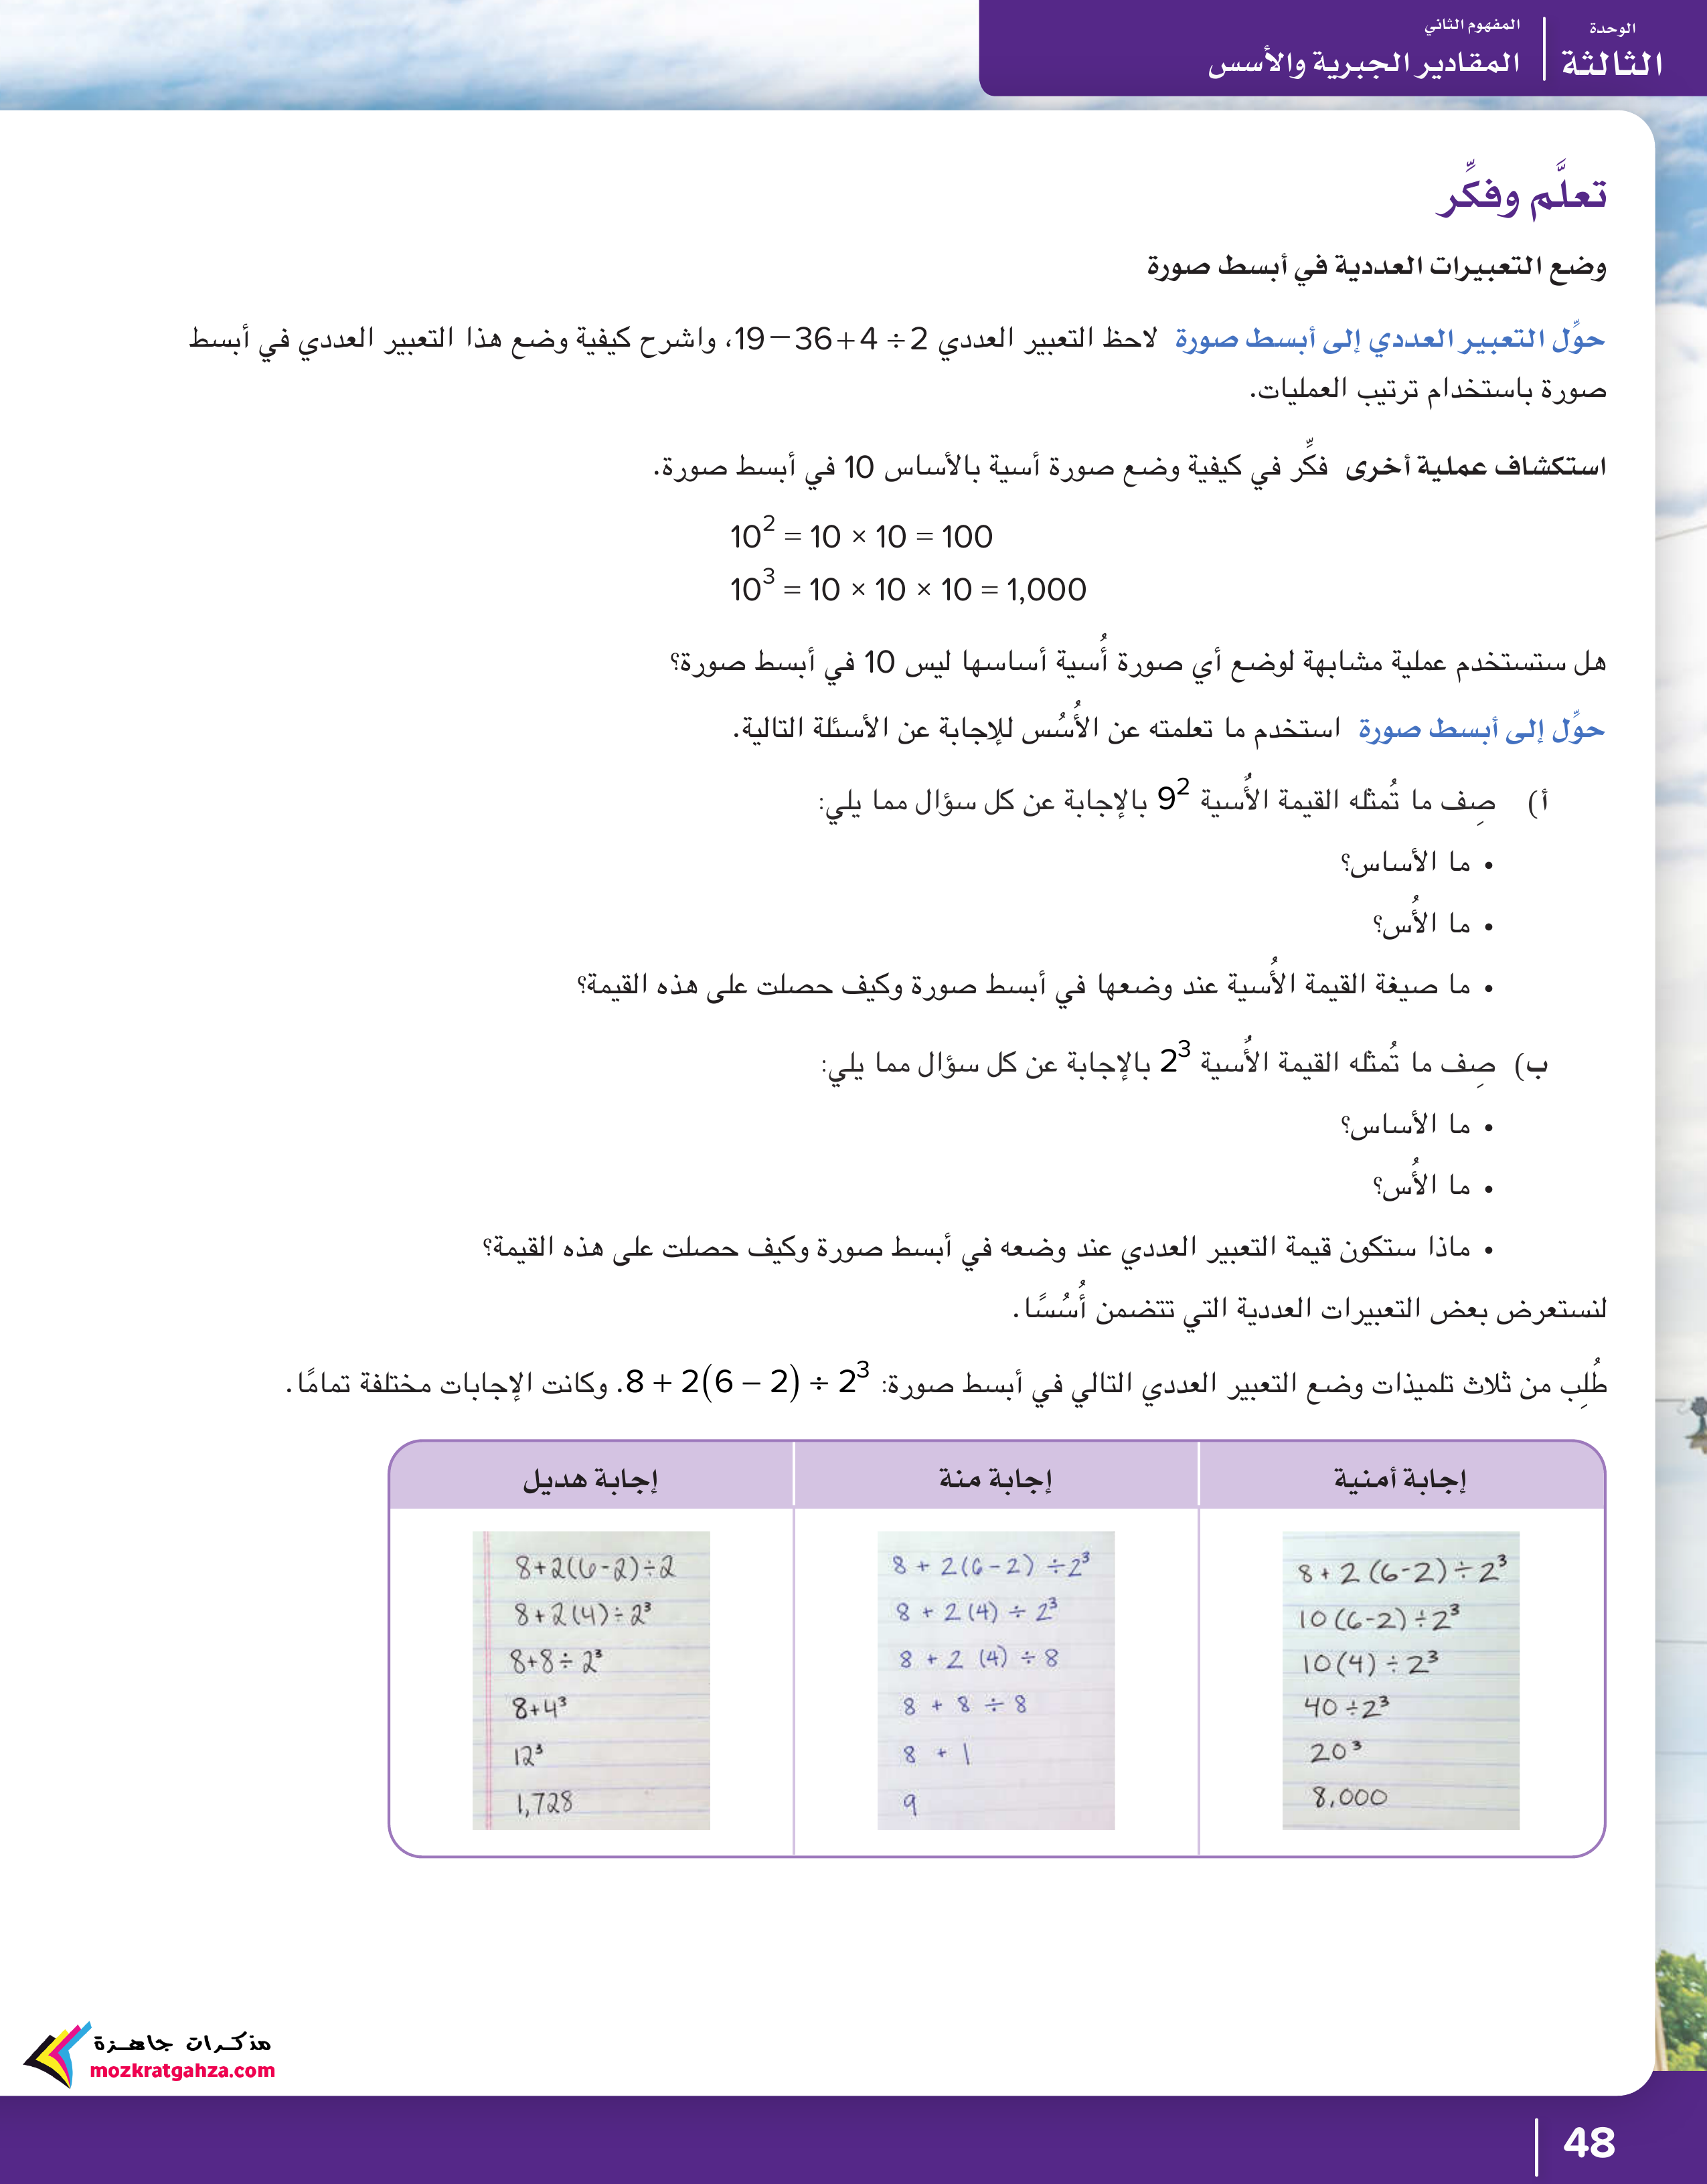 الوحدة
الثالثة
المفهوم الثاني
المقادير الجبرية والأسس
تعلَّم وفكِّر
وضع التعبيرات العددية في أبسط صورة
حوِّل التعبير العددي إلى أبسط صورة لاحظ التعبير العددي 19−36+4 ÷ 2، واشرح كيفية وضع هذا التعبير العددي في أبسط
صورة باستخدام ترتيب العمليات.
استكشاف عملية أخرى فكِّر في كيفية وضع صورة أسية بالأساس 10 في أبسط صورة.
10² = 10 × 10 = 100
10³ = 10 × 10 × 10 = 1,000
هل ستستخدم عملية مشابهة لوضع أي صورة أُسية أساسها ليس 10 في أبسط صورة؟
حوِّل إلى أبسط صورة استخدم ما تعلمته عن الأُسُس للإجابة عن الأسئلة التالية.
أ) صِف ما تُمثله القيمة الأُسية 9² بالإجابة عن كل سؤال مما يلي:
• ما الأساس؟
• ما الأُس؟
• ما صيغة القيمة الأُسية عند وضعها في أبسط صورة وكيف حصلت على هذه القيمة؟
ب) صِف ما تُمثله القيمة الأُسية 2³ بالإجابة عن كل سؤال مما يلي:
• ما الأساس؟
• ما الأُس؟
• ماذا ستكون قيمة التعبير العددي عند وضعه في أبسط صورة وكيف حصلت على هذه القيمة؟
لنستعرض بعض التعبيرات العددية التي تتضمن أُسُسًا.
طُلِب من ثلاث تلميذات وضع التعبير العددي التالي في أبسط صورة: 8 + 2(6 − 2) ÷ 2³. وكانت الإجابات مختلفة تمامًا.
إجابة أمنية
8 + 2 (6-2) ÷ 2³
10 (6-2) ÷ 2³
10(4) ÷ 2³
40 ÷ 2³
20³
8,000
إجابة منة
8 + 2(6-2) ÷ 2³
8 + 2 (4) ÷ 2³
8 + 2 (4) ÷ 8
8 + 8 ÷ 8
8 + 1
9
إجابة هديل
8+2(6-2)÷2
8+2(4)÷2³
8+8÷2³
8+4³
12³
1,728
مذكرات جاهزة
mozkratgahza.com
48